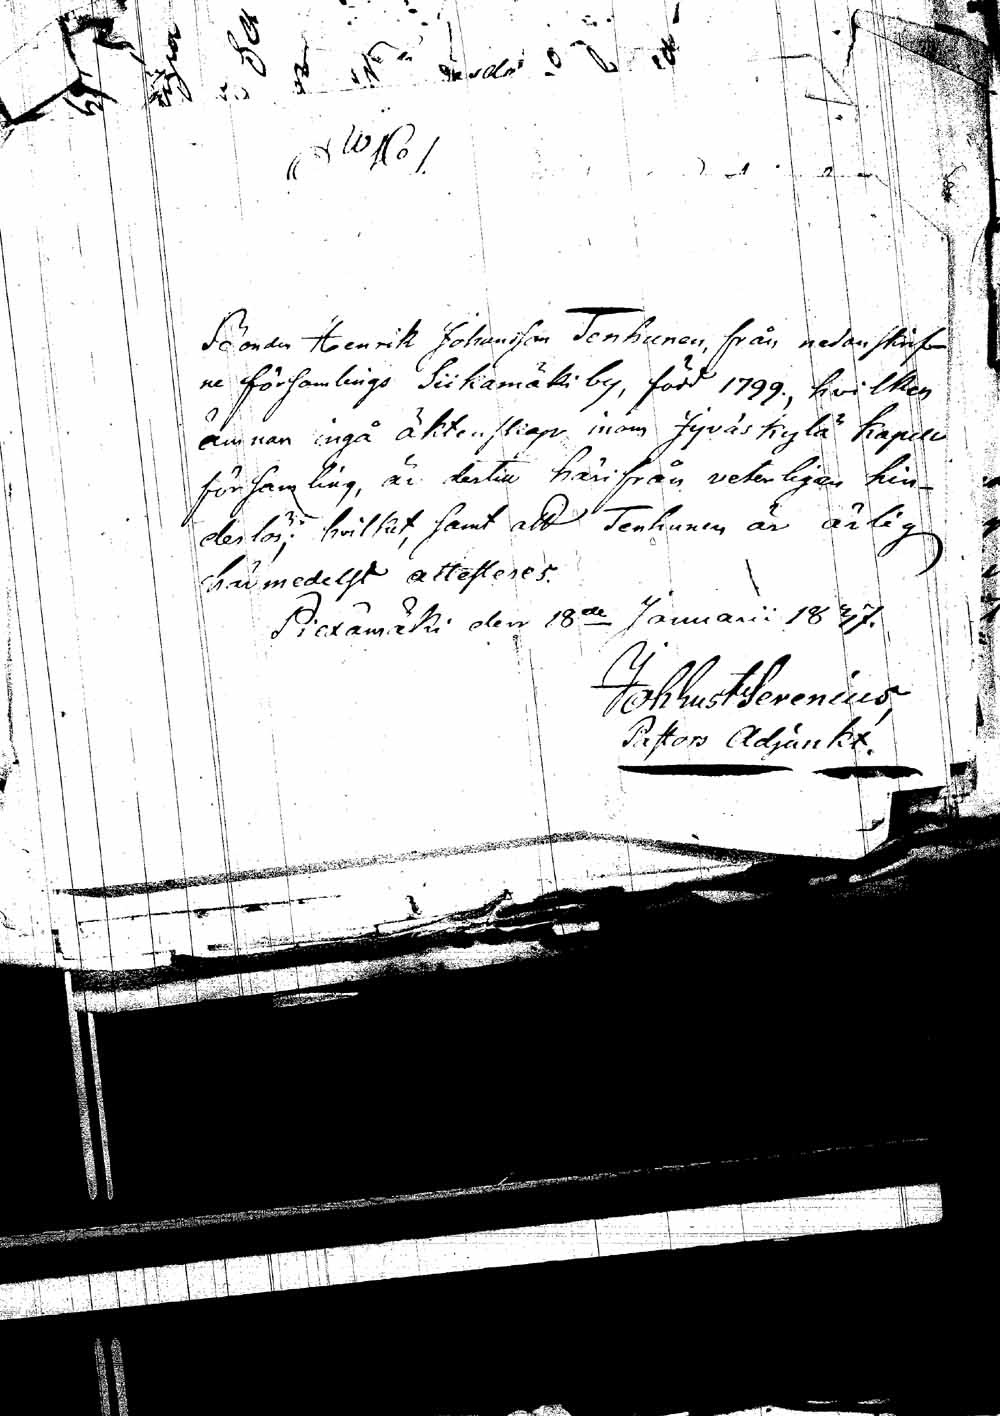 No 1.
Bonden Henrik Johansson Tenhunen, från nedanskrif-
ne församlings Siikamäki by, född 1799, hvilken
ämnar ingå äktenskap inom Jyväskylä kapell
församling, är dertill härifrån veterligen hin-
derlös; hvilket, samt att Tenhunen är ärlig
härmedelst attesteres.
Piexämäki den 18de Januarii 1837.
Serenius,
Pastors Adjunkt.